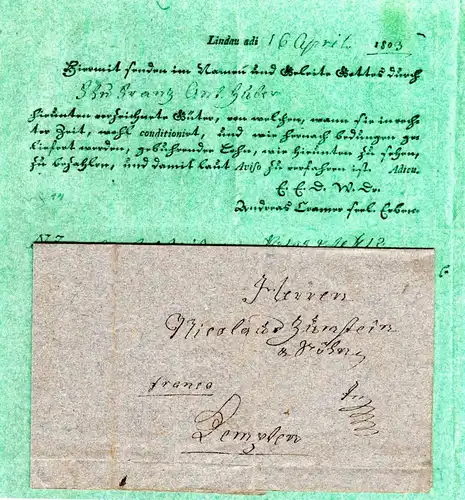 Lindau adi 16 April. 1803
Hiermit senden im Namen und Geleite Gottes durch
Franz Ant. Huber
hierunten verzeichnete Güter, von welchen, wann sie in rech-
ter Zeit, wohl conditionirt, und wie hernach bedungen ge-
liefert worden, gebührender Lohn, wie hierunten zu sehen,
zu bezahlen, und damit laut Aviso zu verfahren ist. Adieu.
E. E. d. W. Dr.
Andreas Cramer seel. Erben
Herren
Nicolaus Zumstein
& Söhne
franco
Kempten